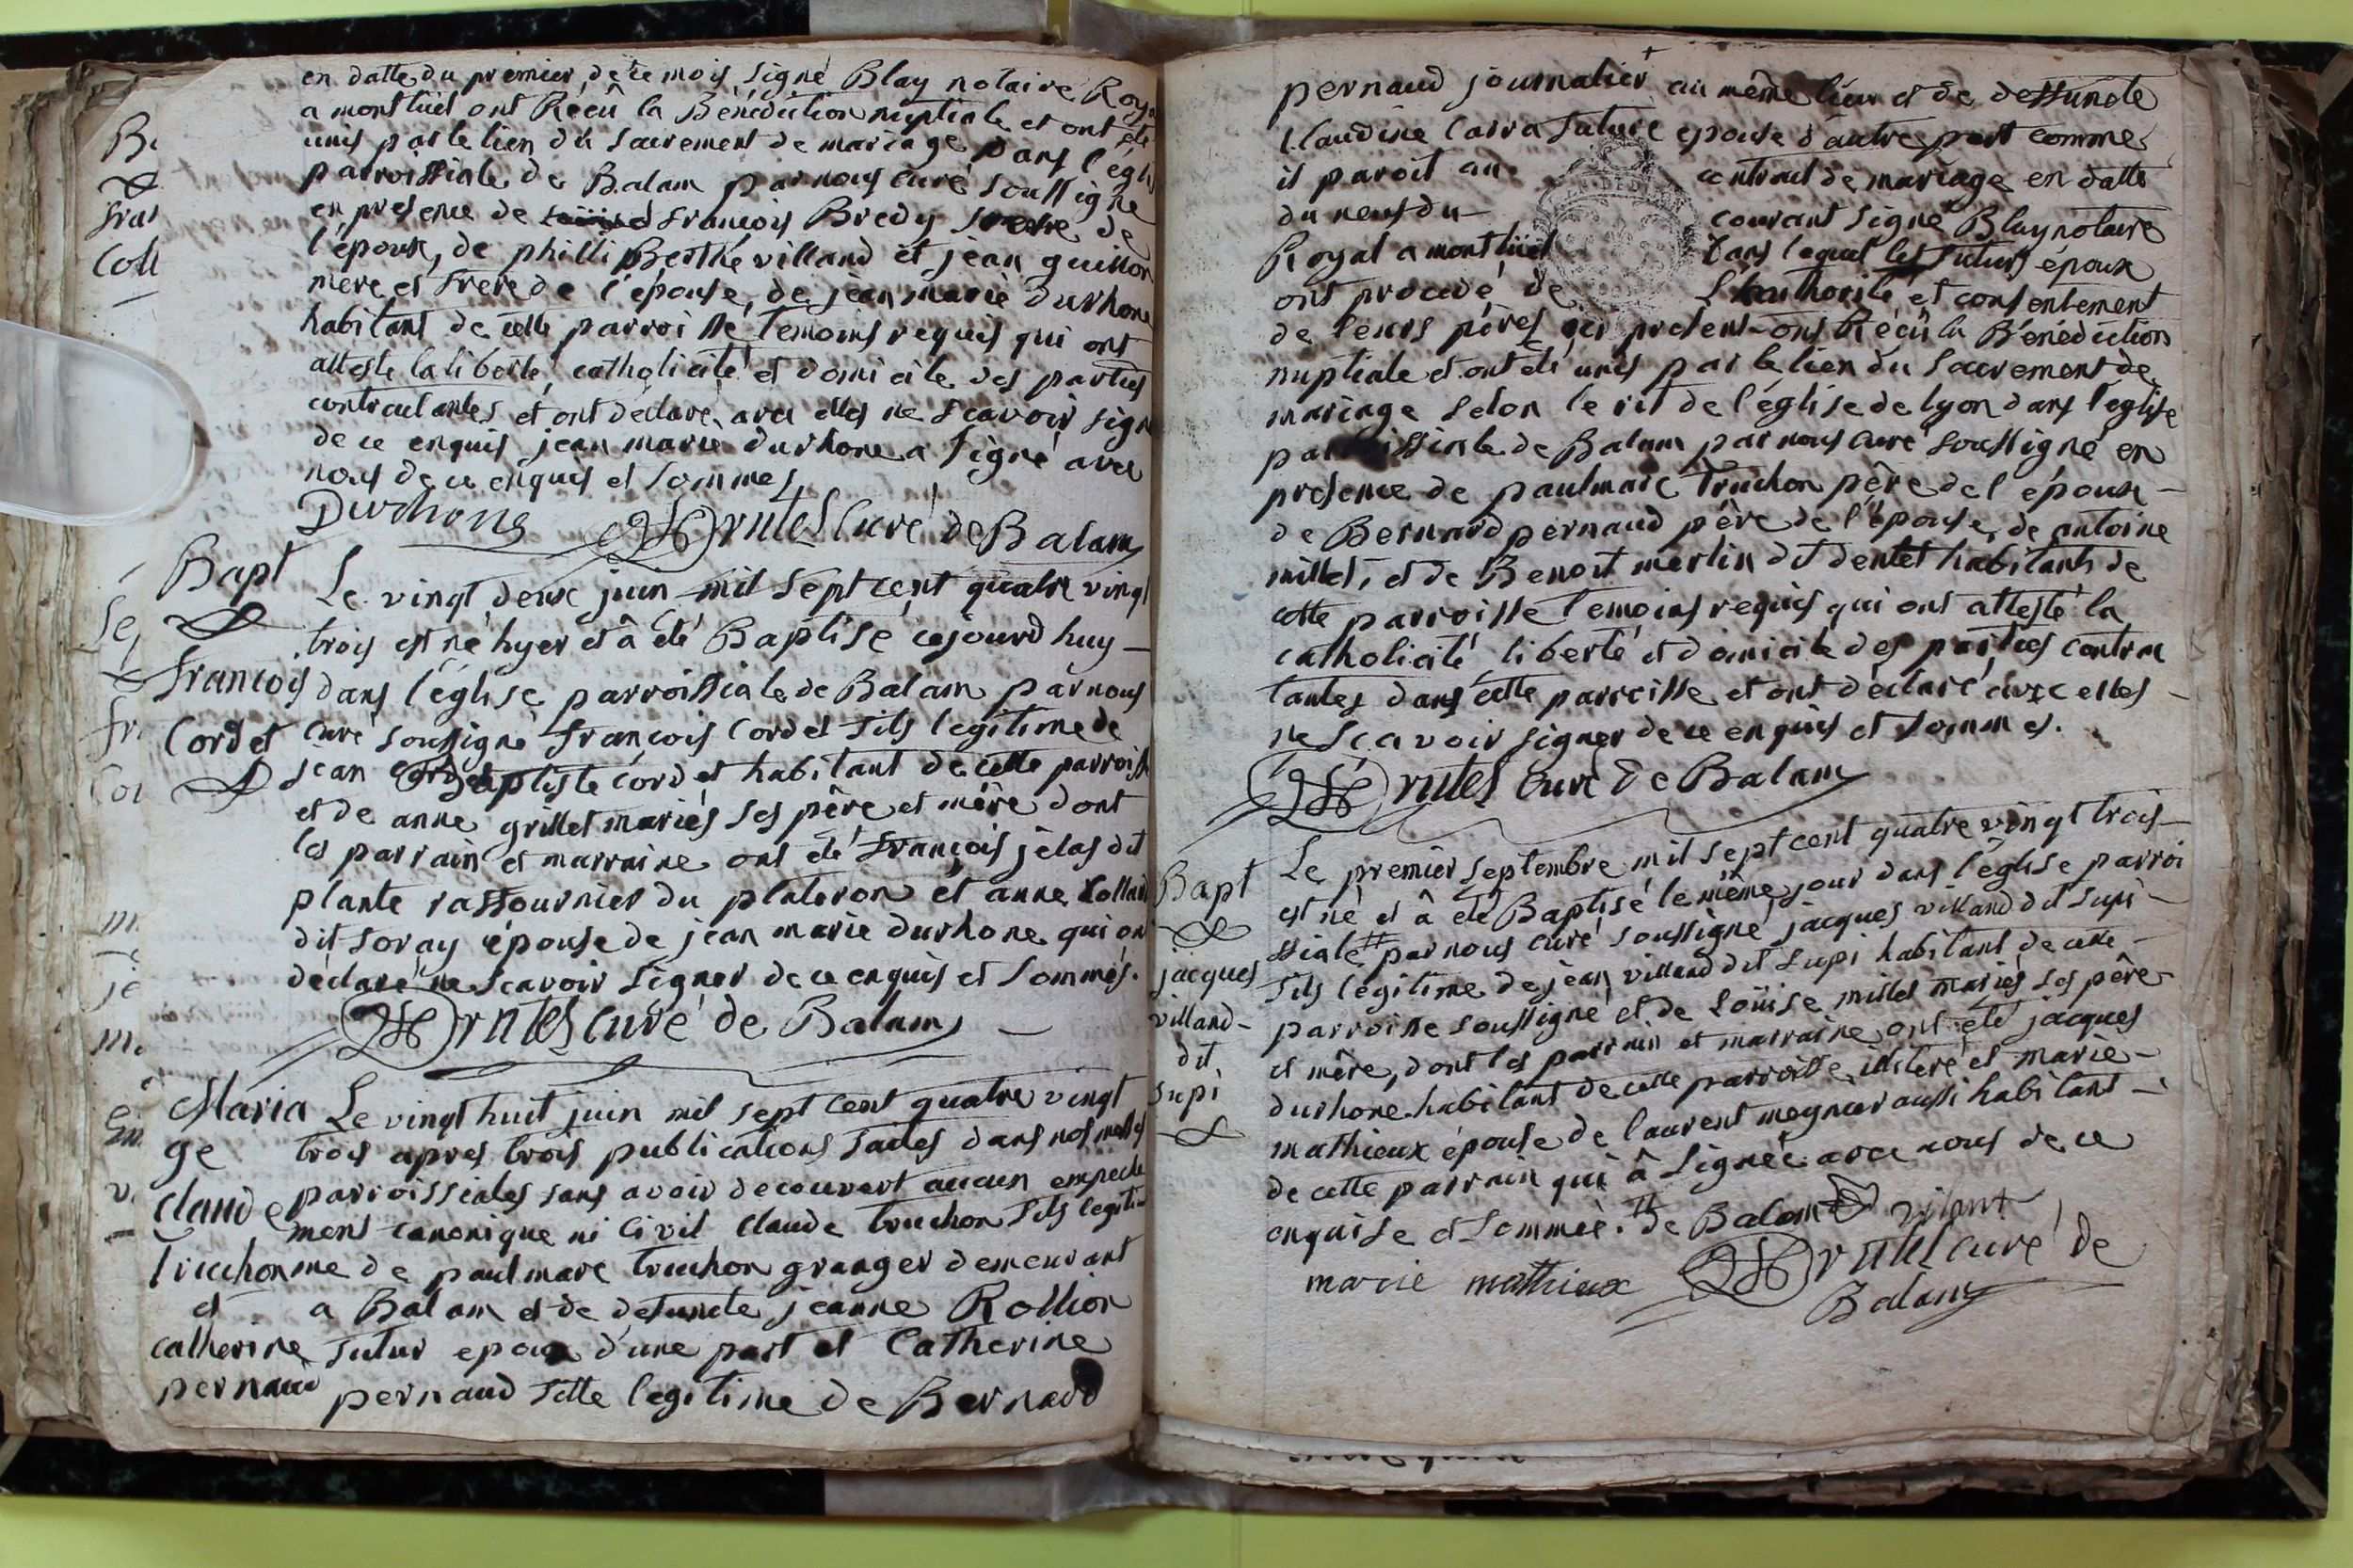 en datte du premier de ce mois signé Blay notaire Roya
a montluel ont Réçû la Bénédiction nuptiale et ont été
unis par le lien du sacrement de mariage dans l'égli
parroissiale de Balam par nous curé soussigné
en presence de françois Bredy frere de
l'époux, de philliBerthe villand et jean guillon
mere et frere de l'épouse, de jean marie durhone
habitant de cette parroisse temoins requis qui ont
attesté la liberté, catholicité et domicile des parties
contractantes et ont déclaré avec elles ne scavoir sign
de ce enquis jean marie durhone a signé avec
nous de ce enquis et sommés
Durhone Brutel curé de Balam
Bapt
françois
Cordet
Le vingt deux juin mil sept cent quatre vingt
trois est né hyer et â été Baptisé cejourd'huy
dans l'église parroissiale de Balam par nous
curé soussigné françois Cordet fils legitime de
jean Baptiste cordet habitant de cette parroiss
et de anne grillet mariés ses père et mère dont
les parrain et marraine ont été françois jelas dit
plante rassournier du plateron et anne
dit soray épouse de jean marie durhone qui on
déclaré ne scavoir signer de ce enquis et sommés.
Brutel curé de Balam
Maria
ge
claude
truchon
et
catherine
pernaud
Le vingt huit juin mil sept cent quatre vingt
trois apres trois publications faites dans nos messes
parroissiales sans avoir decouvert aucun empeche
ment canonique ni civil claude truchon fils legiti
me de paul marc truchon granger demeurant
a Balam et de defuncte jeanne Rollion
futur epoux d'une part et Catherine
pernaud fille legitime de Bernard
pernaud journalier au même lieu et de deffuncte
Claudine Carra future epouse d'autre part comme
il paroit au contract de mariage en datte
du neuf du courant signé Blay notaire
Royal a montluel dans lequel les futurs époux
ont procédé de L'authorité et consentement
de leurs pères ici présent ont Réçû la Bénédiction
nuptiale et ont été unis par le lien du sacrement de
mariage selon le rit de l'église de lyon dans l'église
parroissiale de Balam par nous curé soussigné en
presence de paulmarc Truchon père de l'époux
de Bernard pernaud père de l'épouse, de antoine
millet, et de Benoit merlin dit dentet habitants de
cette parroisse temoins requis qui ont attesté la
catholicité liberté et domicile des parties contrac
tantes dans cette parroisse et ont déclaré avec elles
ne sçavoir signer de ce enquis et sommés.
Brutel curé de Balam
Bapt
jacques
villand
dit
supi
Le premier septembre mil sept cent quatre vingt trois
est né et â été Baptisé le même jour dans l'église parroi
ssiale # par nous curé soussigné jacques villand dit supi
fils légitime de jean villand dit supi habitant de cette
parroisse soussigné et de Loüise millet mariés ses père
et mère, dont les parrain et marraine ont été jacques
durhone habitant de cette parroisse illiteré et marie
mathieux épouse de laurent meynier aussi habitant
de cette parrain qui â signée avec nous de ce
enquise et sommée. # de Balam vilant
marie mathieux Brutel curé de
Balam